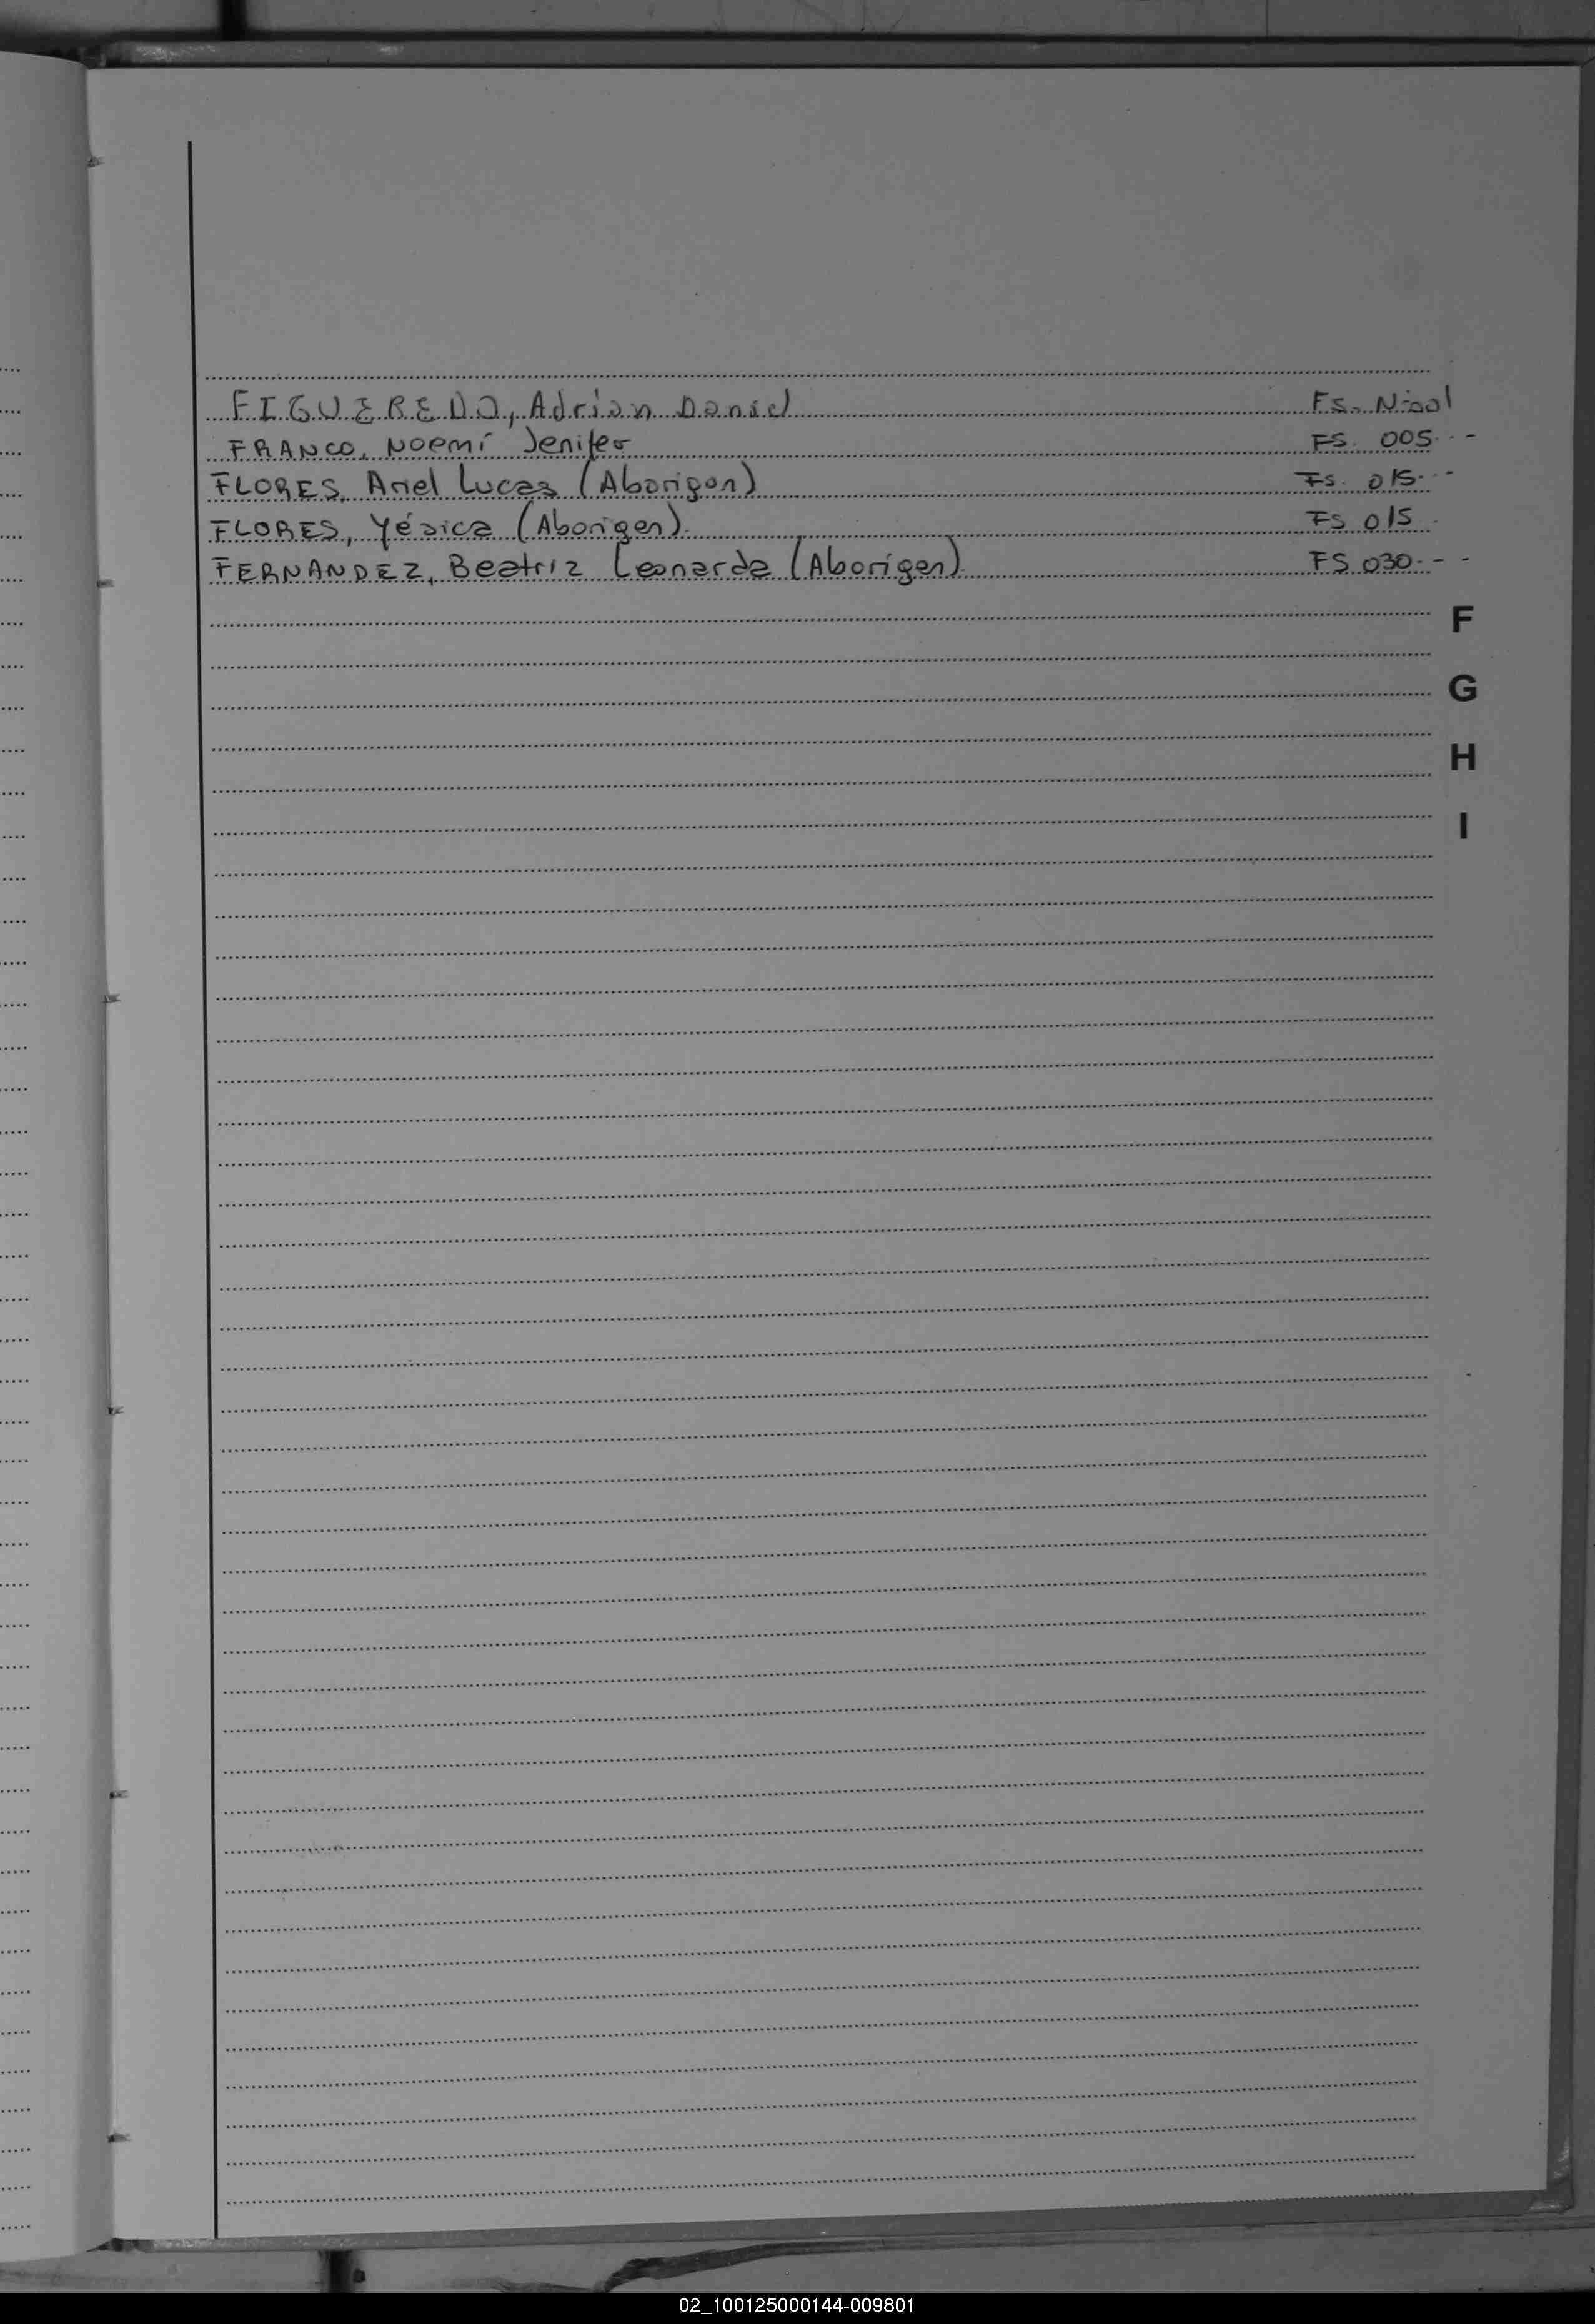 FIGUEREDO, Adrian Daniel Fs. Nº001
FRANCO, Noemí Jenifer FS. 005--
FLORES, Ariel Lucas (Aborigen) Fs. 015--
FLORES, Yésica (Aborigen) FS 015
FERNANDEZ, Beatriz Leonarda (Aborígen) FS 030---
F
G
H
I
02_100125000144-009801